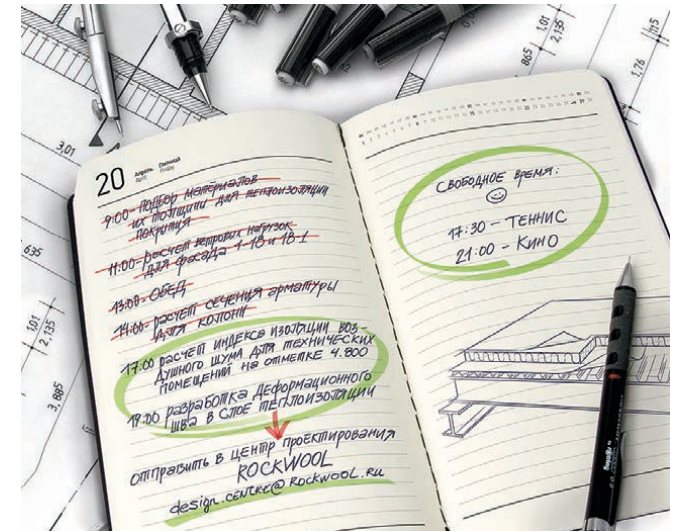 20
Апрель Пятница
April Friday
9:00- подбор материалов
их толщин для теплоизоляции
покрытия
11:00- расчет ветровых нагрузок
для фасада 1-18 и 18-1
13:00- ОБЕД
14:00- расчет сечения арматуры
для колонн
17:00 расчет индекса изоляции воз-
душного шума для технических
помещений на отметке 4.800
19:00 разработка деформационного
шва в слое теплоизоляции
отправить в центр проектирования
ROCKWOOL
design.centre@rockwool.ru
СВОБОДНОЕ ВРЕМЯ:
17:30 - ТЕННИС
21:00 - КИНО
3,01
635
1,01
2,135
3,885
865
1,01
2,135
1,76